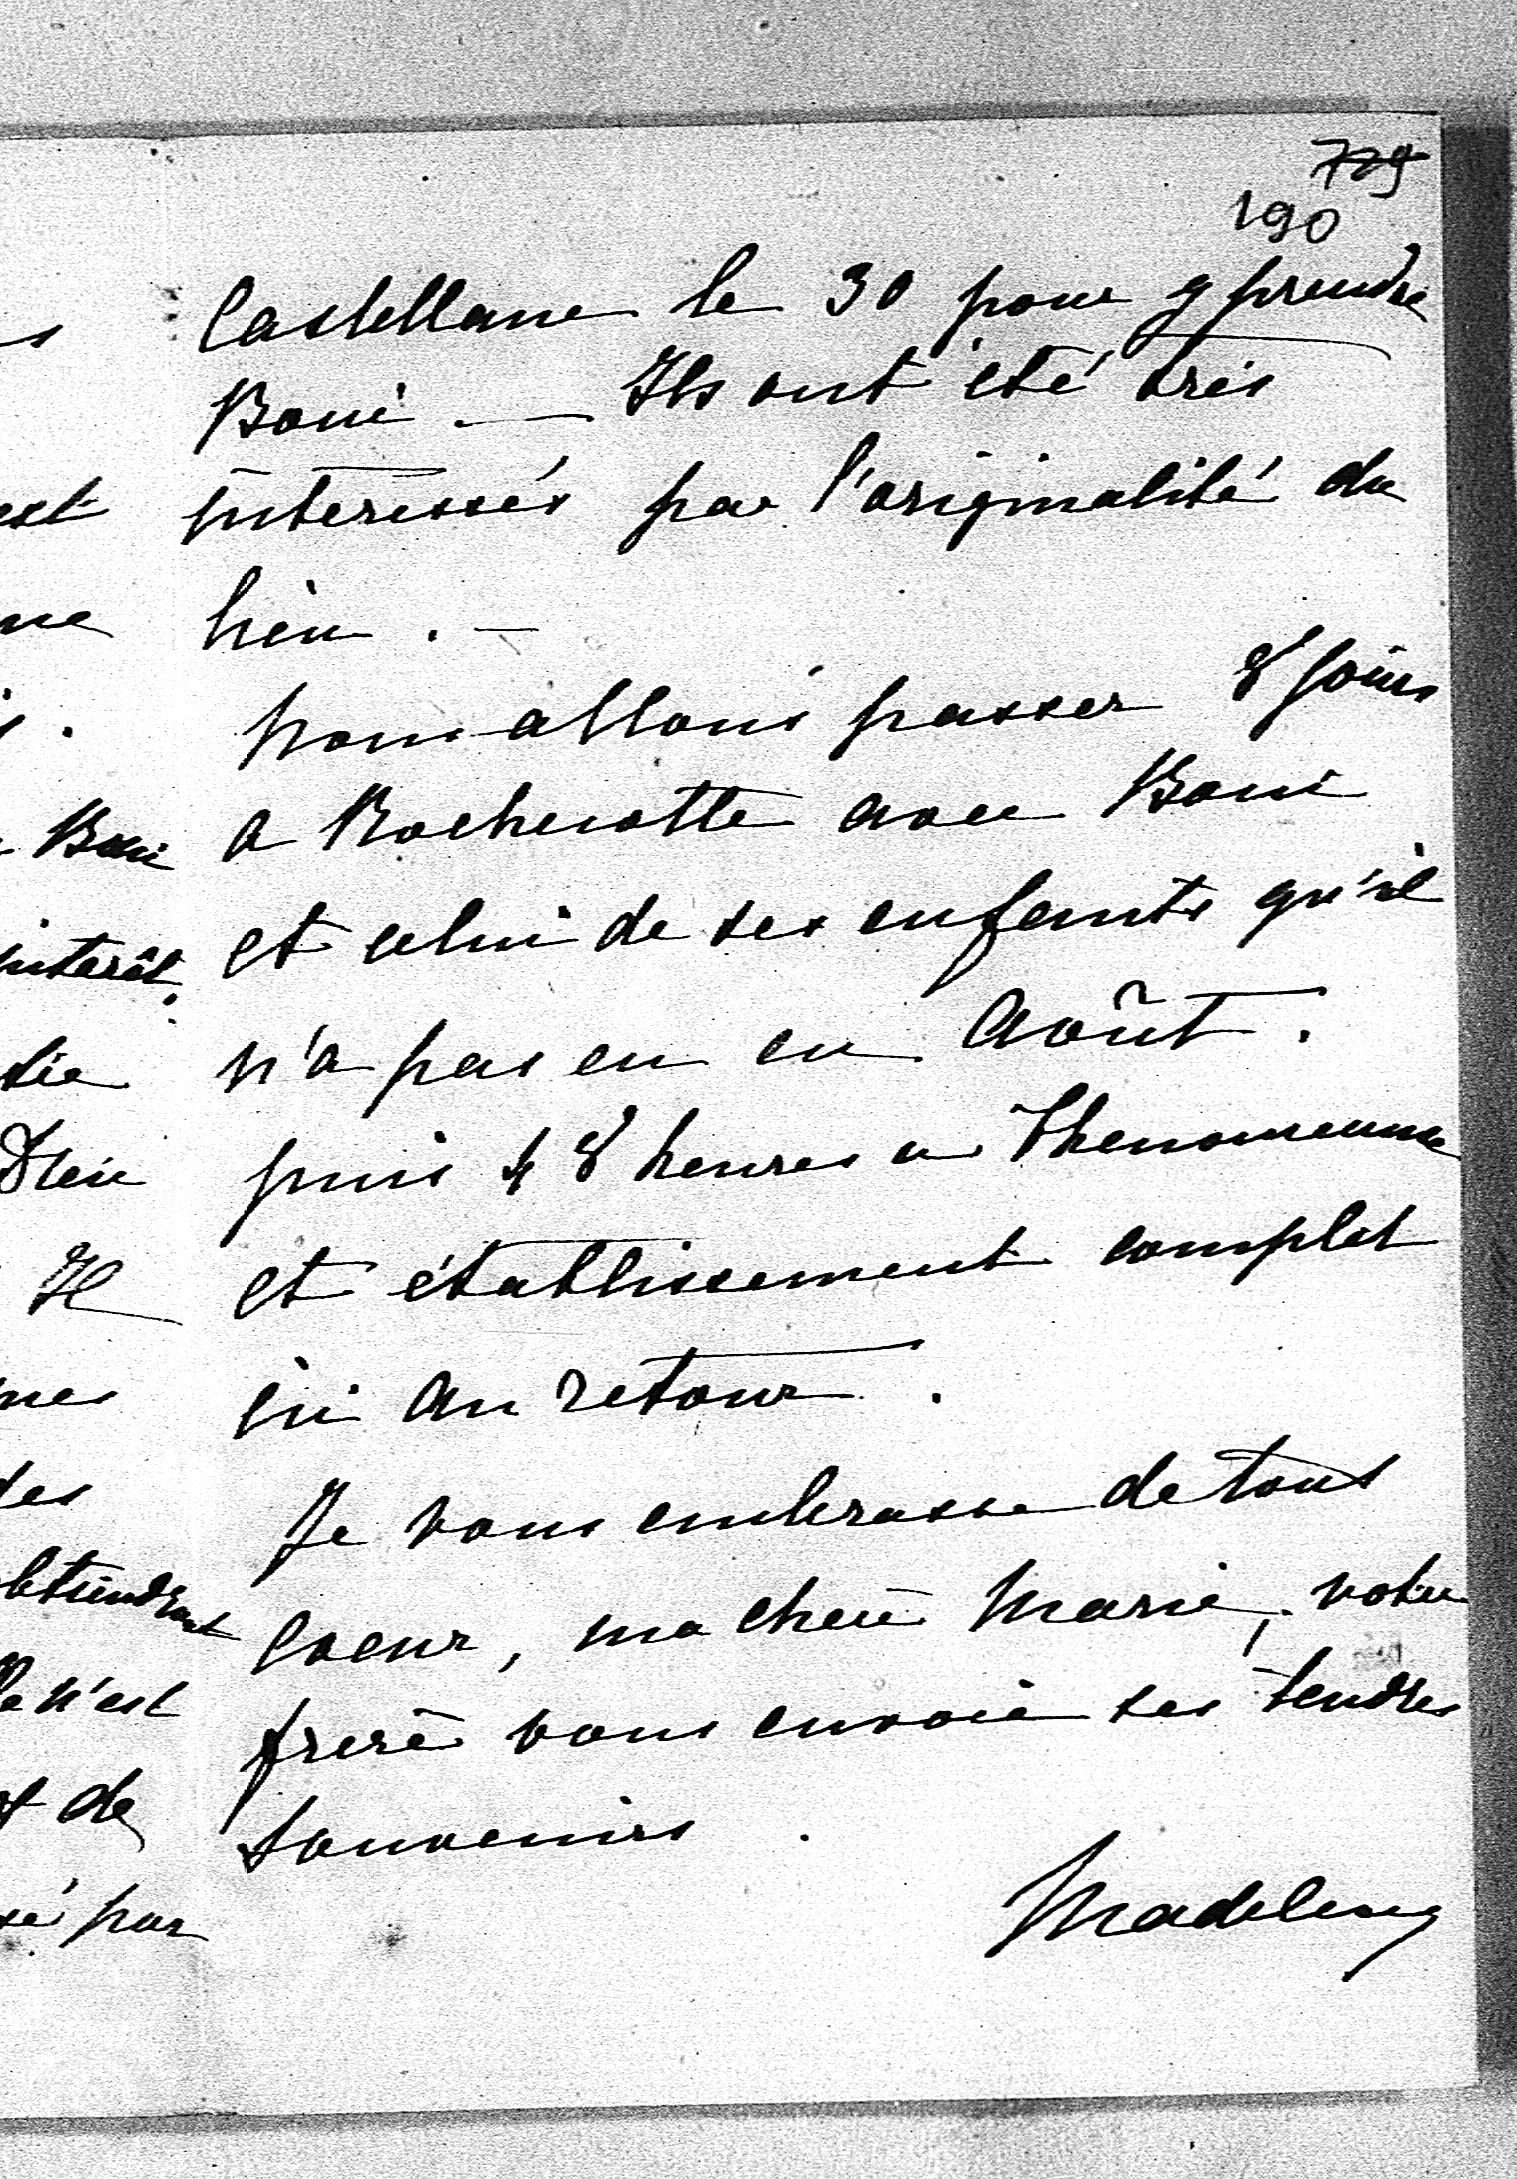 729
190
Castellane le 30 pour y prendre
Boni. — Ils ont été très
interessés par l'originalité du
lieu. —
Nous allons passer 8 jours
a Rochecotte avec Boni
et celui de ses enfants qu'il
n'a pas eu en Août.
puis 48 heures a
et établissement complet
ici au retour.
Je vous embrasse de tout
coeur, ma chère Marie, votre
frère vous envoie ses tendres
souvenirs.
Madeleine
est
ne
Boni
interêt.
Dieu
Il
mes
des
obtiendront
n'est
de
par